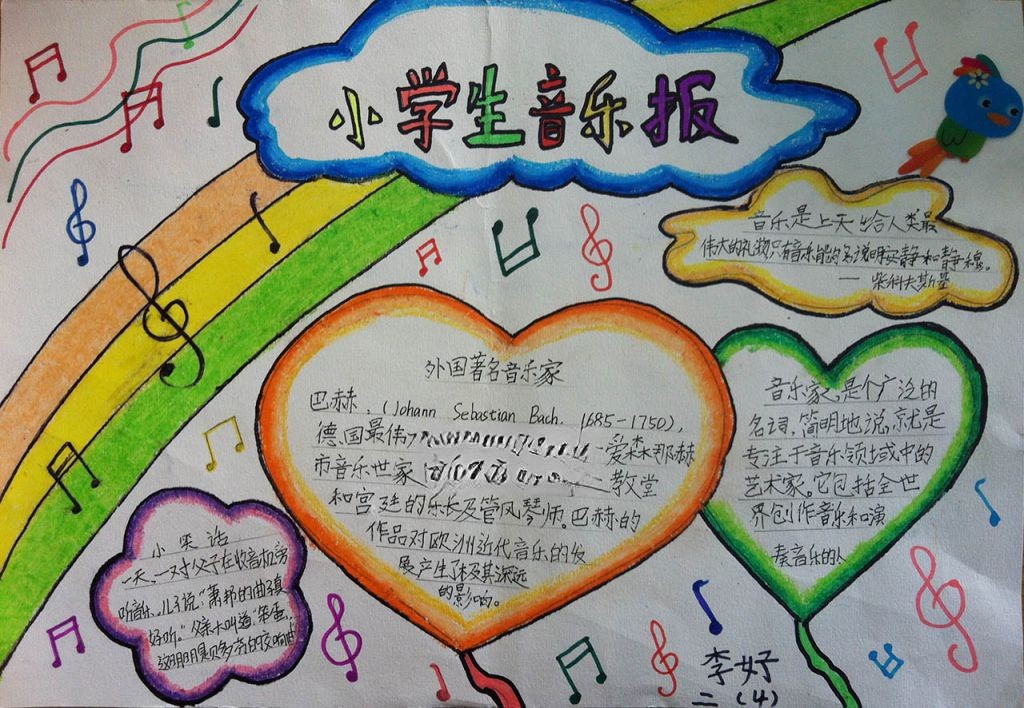 小学生音乐报
音乐是上天给人类最
伟大的礼物只有音乐能的名说明安静和静穆。
— 柴科夫斯基
外国著名音乐家
巴赫，(Johann Sebastian Bach, 1685-1750),
德国最伟 爱森那赫
市音乐世家 教堂
和宫廷的乐长及管风琴师。巴赫的
作品对欧洲近代音乐的发
展产生了极其深远
的影响。
音乐家，是个广泛的
名词，简明地说，就是
专注于音乐领域中的
艺术家。它包括全世
界创作音乐和演
奏音乐的人
小笑话
一天，一对父子在收音机旁
听音乐。儿子说："萧邦的曲子真
好听。"父亲大叫道："笨蛋，
这明明是贝多芬的交响曲
李好
二 (4)